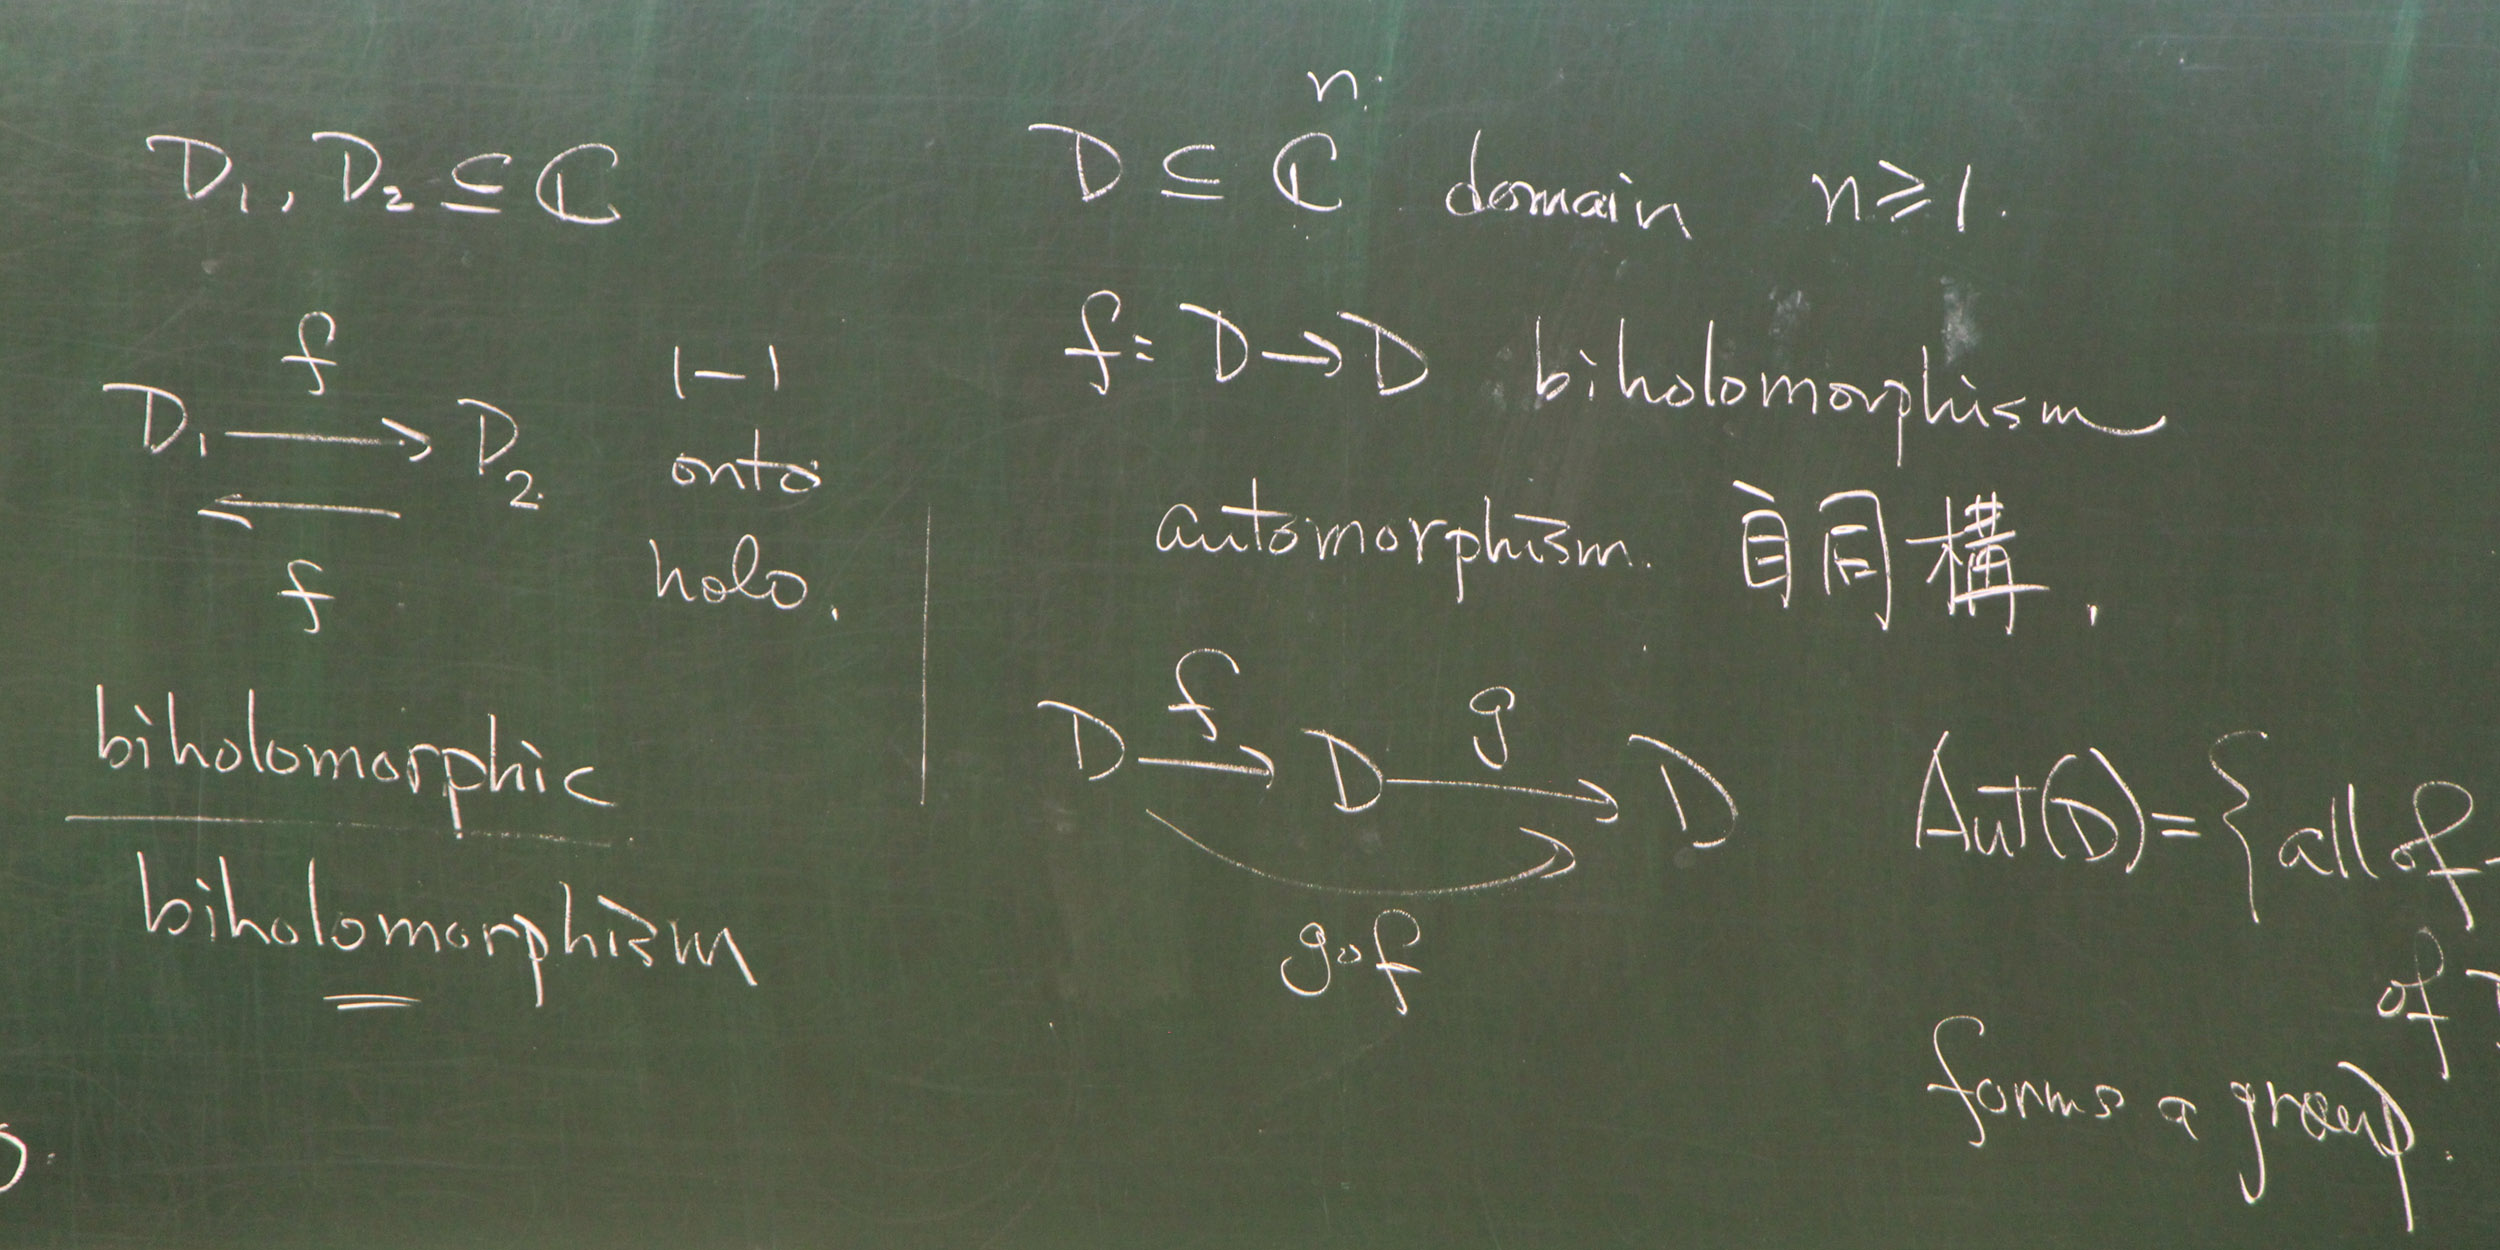 D₁, D₂ ⊆ ℂ
f
D₁ → D₂
←
f
1-1
onto
holo.
biholomorphic
biholomorphism
D ⊆ ℂⁿ domain n ≥ 1.
f: D → D biholomorphism
automorphism. 自同構.
D →f D →g D
g∘f
Aut(D) = { all of
of
forms a group.